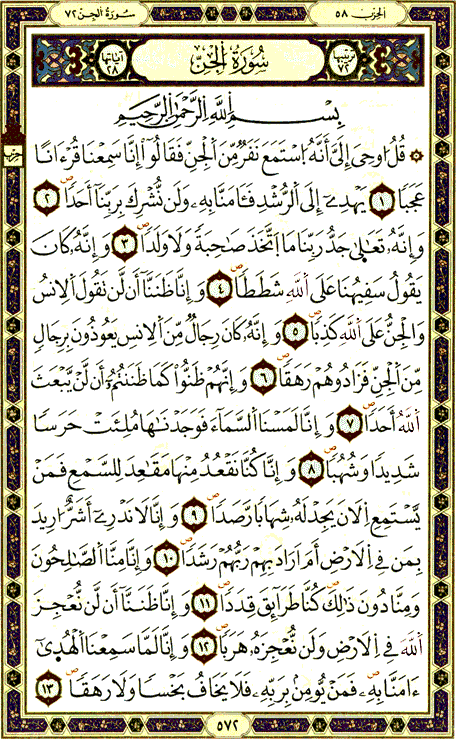 الحِزْب ٥٨ سُورَةُ الجِنّ ٧٢
تَرْتِيبُهَا ٧٢ سُورَةُ الْجِنِّ آيَاتُهَا ٢٨
بِسْمِ اللَّهِ الرَّحْمَٰنِ الرَّحِيمِ
۞ قُلُ اوحِيَ إِلَيَّ أَنَّهُ اُ۪سْتَمَعَ نَفَرٌ مِّنَ اَ۬لْجِنِّ فَقَالُوٓاْ إِنَّا سَمِعْنَا قُرْءَاناً
عَجَباً ١ يَهْدِےٓ إِلَى اَ۬لرُّشْدِ فَـَٔامَنَّا بِهِۦ وَلَن نُّشْرِكَ بِرَبِّنَآ أَحَداً ٢
وَإِنَّهُۥ تَعَٰلَىٰ جَدُّ رَبِّنَا مَا اَ۪تَّخَذَ صَٰحِبَةً وَلَا وَلَداً ٣ وَإِنَّهُۥ كَانَ
يَقُولُ سَفِيهُنَا عَلَى اَ۬للَّهِ شَطَطاً ٤ وَإِنَّا ظَنَنَّآ أَن لَّن تَقُولَ اَ۬لِانسُ
وَالْجِنُّ عَلَى اَ۬للَّهِ كَذِباً ٥ وَإِنَّهُۥ كَانَ رِجَالٌ مِّنَ اَ۬لِانسِ يَعُوذُونَ بِرِجَالٍ
مِّنَ اَ۬لْجِنِّ فَزَادُوهُمْ رَهَقاً ٦ وَإِنَّهُمْ ظَنُّواْ كَمَا ظَنَنتُمُۥٓ أَن لَّنْ يَّبْعَثَ
اَ۬للَّهُ أَحَداً ٧ وَإِنَّا لَمَسْنَا اَ۬لسَّمَآءَ فَوَجَدْنَٰهَا مُلِئَتْ حَرَساً
شَدِيداً وَشُهُباً ٨ وَإِنَّا كُنَّا نَقْعُدُ مِنْهَا مَقَٰعِدَ لِلسَّمْعِ فَمَنْ
يَّسْتَمِعِ اِ۬لَانَ يَجِدْ لَهُۥ شِهَاباً رَّصَداً ٩ وَإِنَّا لَا نَدْرِےٓ أَشَرٌّ ا۟رِيدَ
بِمَن فِے اِ۬لَارْضِ أَمَ اَرَادَ بِهِمْ رَبُّهُمْ رَشَداً ١٠ وَإِنَّا مِنَّا اَ۬لصَّٰلِحُونَ
وَمِنَّا دُونَ ذَٰلِكَ كُنَّا طَرَآئِقَ قِدَداً ١١ وَإِنَّا ظَنَنَّآ أَن لَّن نُّعْجِزَ
اَ۬للَّهَ فِے اِ۬لَارْضِ وَلَن نُّعْجِزَهُۥ هَرَباً ١٢ وَإِنَّا لَمَّا سَمِعْنَا اَ۬لْهُدَىٰٓ
ءَامَنَّا بِهِۦ فَمَنْ يُّومِنۢ بِرَبِّهِۦ فَلَا يَخَافُ بَخْساً وَلَا رَهَقاً ١٣
٥٧٢